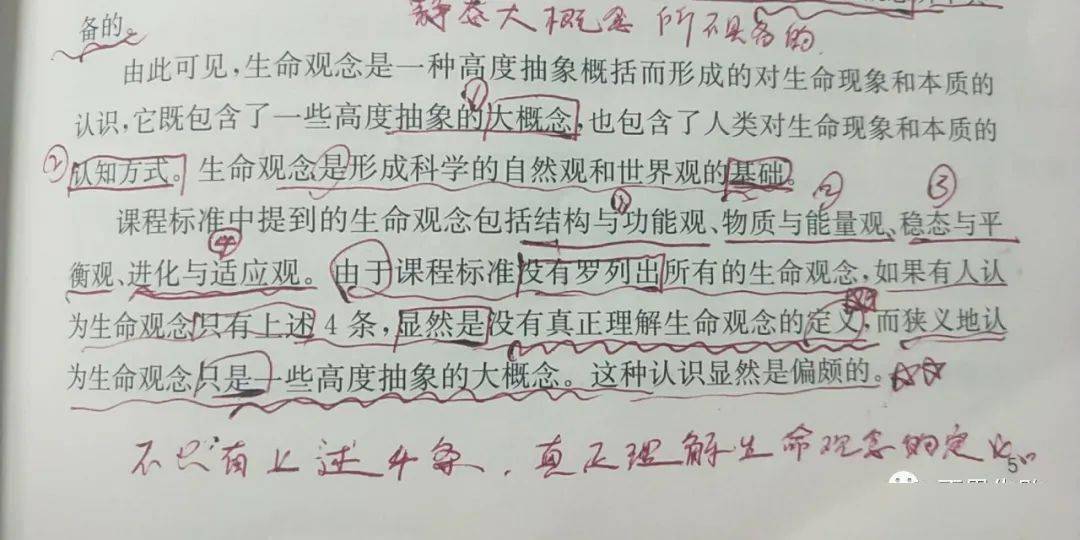 静态大概念所不具备的
备的。
由此可见,生命观念是一种高度抽象概括而形成的对生命现象和本质的
①
认识,它既包含了一些高度抽象的大概念,也包含了人类对生命现象和本质的
②认知方式。生命观念是形成科学的自然观和世界观的基础。
① ② ③
课程标准中提到的生命观念包括结构与功能观、物质与能量观、稳态与平
④
衡观、进化与适应观。由于课程标准没有罗列出所有的生命观念,如果有人认
为生命观念只有上述4条,显然是没有真正理解生命观念的定义,而狭义地认
为生命观念只是一些高度抽象的大概念。这种认识显然是偏颇的。☆☆
不只有上述4条,真正理解生命观念的定义
5